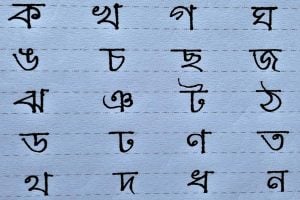 ক খ গ ঘ
ঙ চ ছ জ
ঝ ঞ ট ঠ
ড ঢ ণ ত
থ দ ধ ন